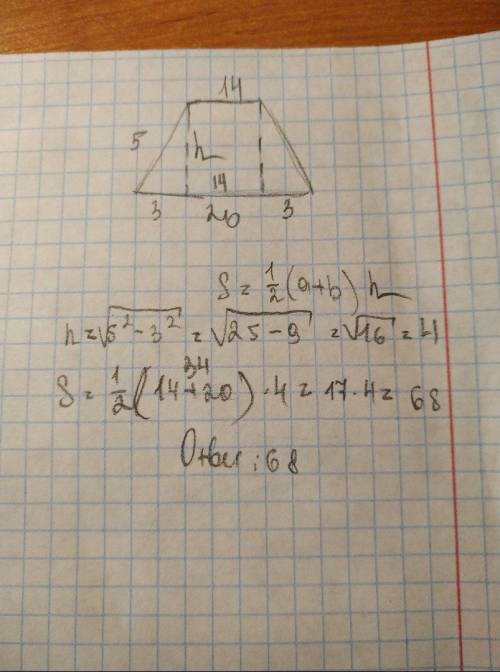 14
5 h
14
3 20 3
S = 1/2 (a+b) h
h = √5² - 3² = √25 - 9 = √16 = 4
34
S = 1/2 (14 + 20) · 4 = 17 · 4 = 68
Ответ: 68